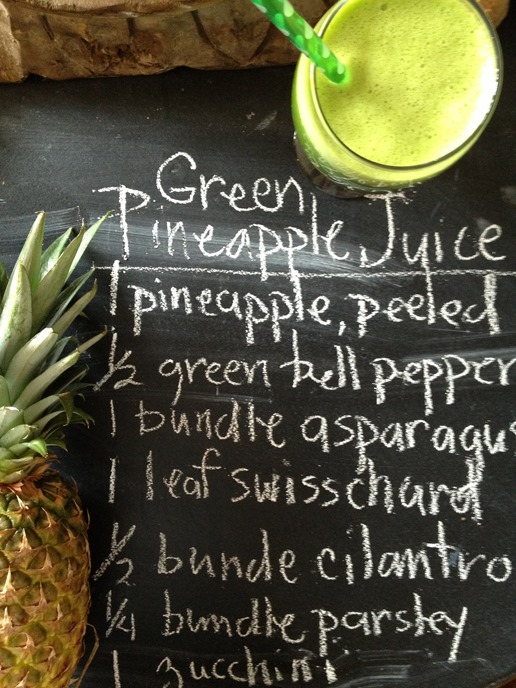 Green
Pineapple Juice
1 pineapple, peeled
½ green bell pepper
1 bundle asparagus
1 leaf swisschard
½ bunde cilantro
¼ bundle parsley
1 zucchini